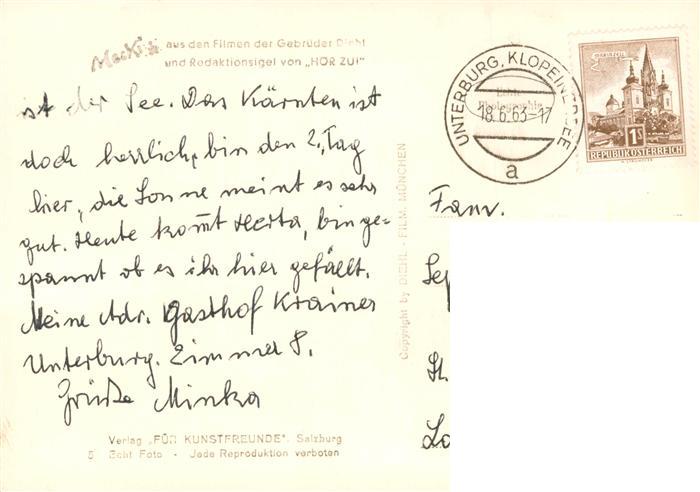 Mecki aus den Filmen der Gebrüder Diehl
und Redaktionsigel von „HÖR ZU!"
ist der See. Das Kärnten ist
doch herrlich, bin den 2. Tag
hier, die Sonne meint es sehr
gut. Heute kommt Herta, bin ge-
spannt ob es ihr hier gefällt.
Meine Adr. Gasthof Krainer
Unterburg. Zimmer 8.
Grüße Minka
Verlag „FÜR KUNSTFREUNDE", Salzburg
Echt Foto - Jede Reproduktion verboten
Copyright by DIEHL - FILM, MÜNCHEN
UNTERBURG, KLOPEINERSEE
18.6.63-17
a
Echte
Photographie
MARIAZELL
1S
REPUBLIK ÖSTERREICH
Fam.